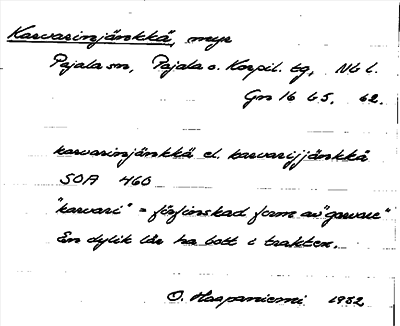 Karvarinjänkkä, myr
Pajala sn, Pajala o. Korpil. tg, Nb l.
Gn 16 65. 62.
karvarinjänkkä el. karvarijjänkkä
SOA 460
"karvari" = förfinskad form av "garvare"
En dylik lär ha bott i trakten.
O. Haapaniemi 1932